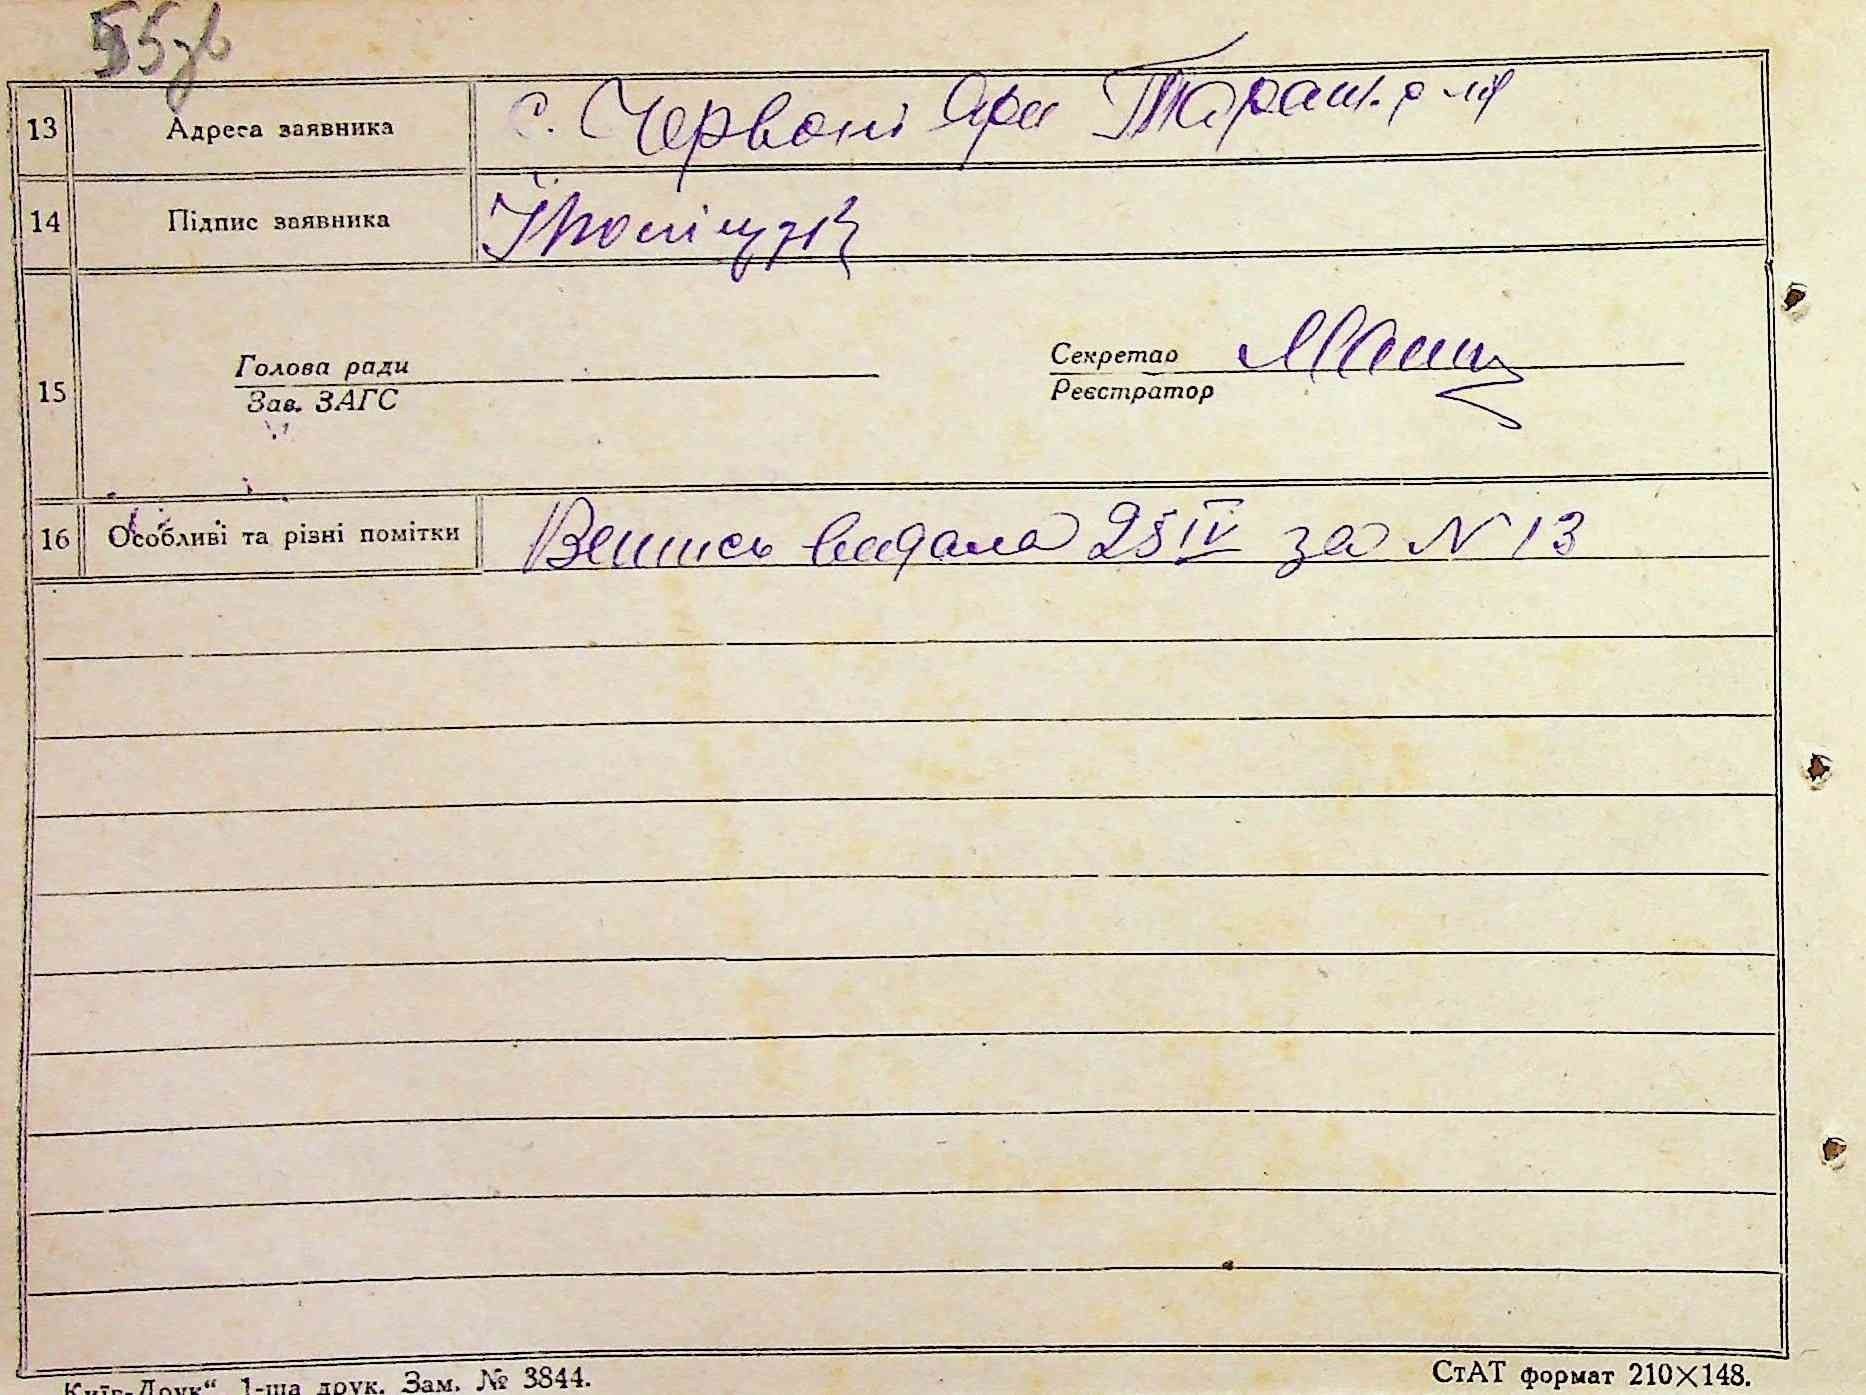 55зв
13 Адреса заявника с. Червоні Яри Таращ. р-ну
14 Підпис заявника
Голова ради Секретар
15
Зав. ЗАГС Реєстратор
16 Особливі та різні помітки Випись видала 25 IV за N 13
Київ-Друк“ 1-ша друк. Зам. № 3844. СтАТ формат 210×148.